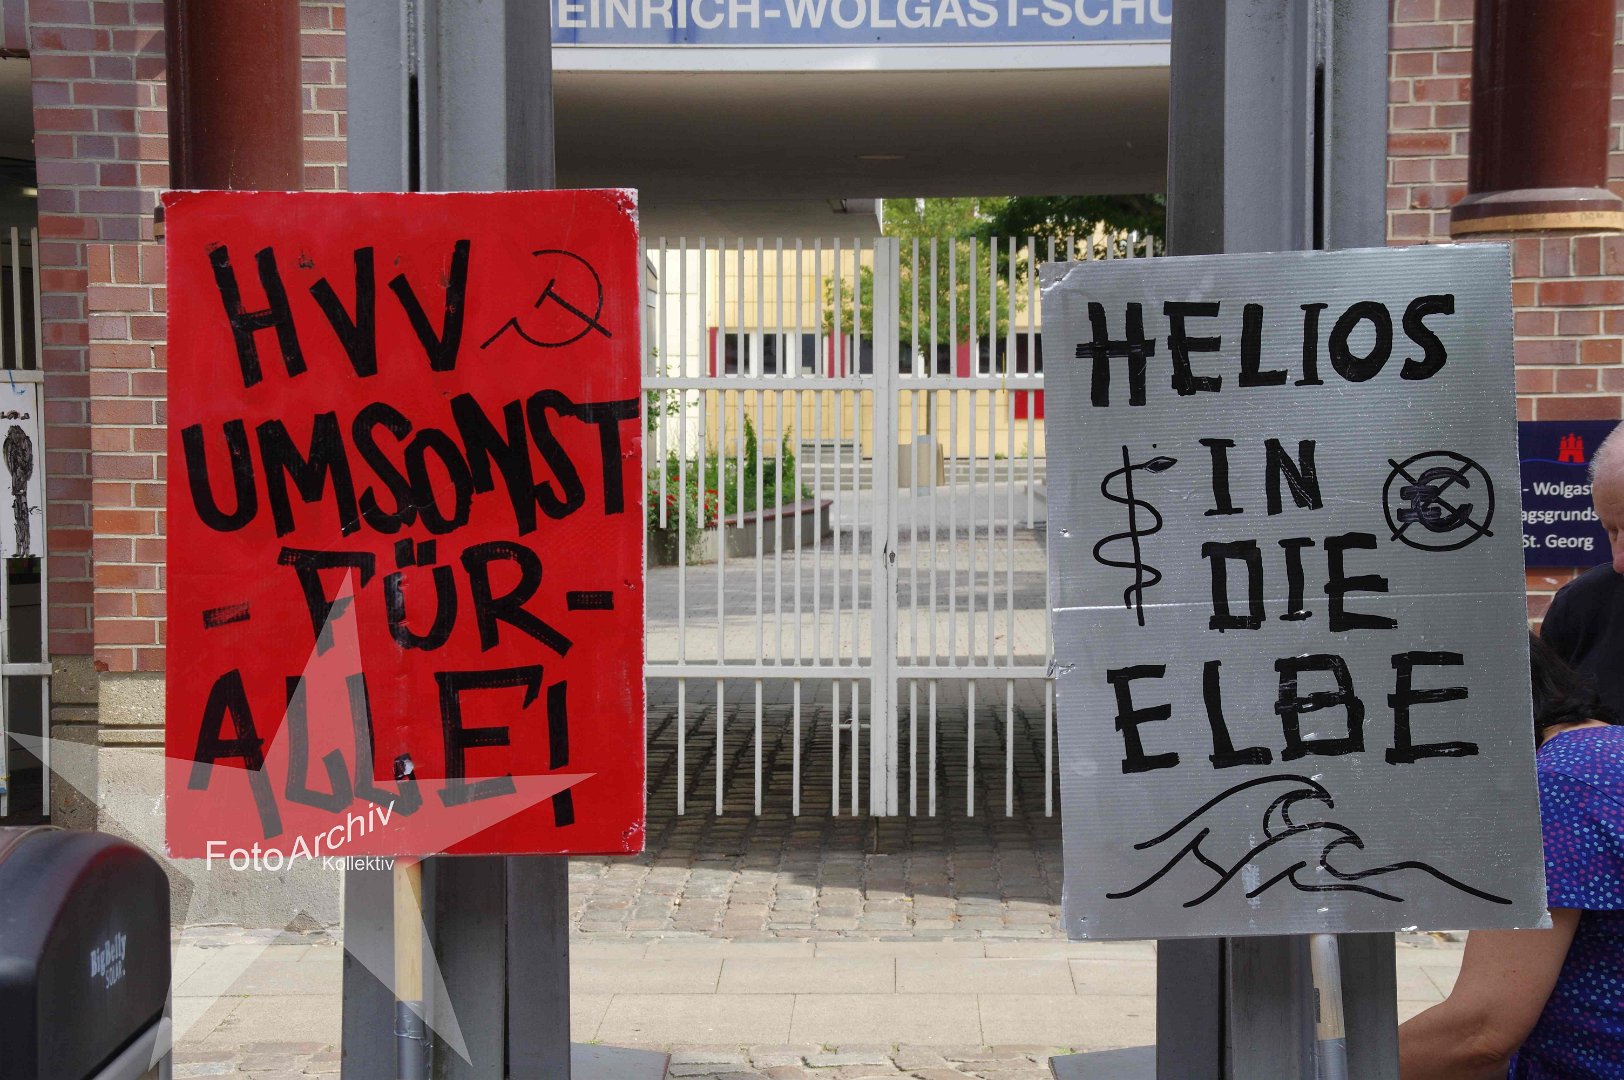 EINRICH-WOLGAST-SCHU
HVV
UMSONST
- FÜR -
ALLE!
HELIOS
IN
DIE
ELBE
- Wolgast
agsgrunds
St. Georg
FotoArchiv
Kollektiv
BigBelly
SOLAR